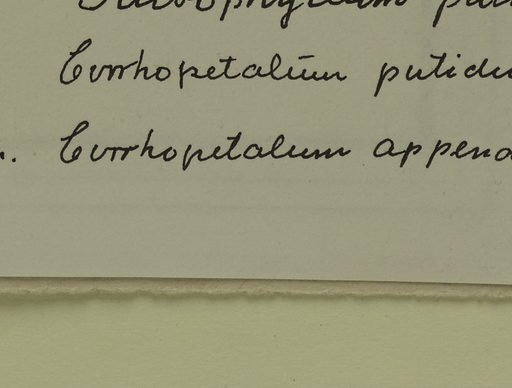 Cirrhopetalum putidu
. Cirrhopetalum append